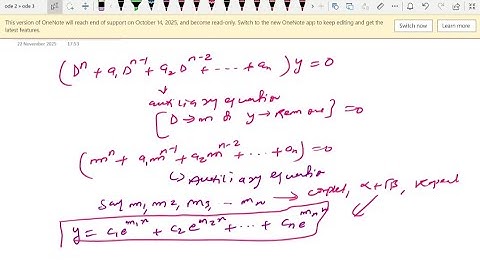 ode 2 > ode 3
This version of OneNote will reach end of support on October 14, 2025, and become read-only. Switch to the new OneNote app to keep editing and get the latest features.
Switch now
Learn more
22 November 2025 17:53
(Dⁿ + a₁Dⁿ⁻¹ + a₂Dⁿ⁻² + ... + aₙ) y = 0
↓
auxiliary equation
[D → m & y → Remove] = 0
(mⁿ + a₁mⁿ⁻¹ + a₂mⁿ⁻² + ... + aₙ) = 0
↳ Auxiliary equation
Say m₁, m₂, m₃, - mₙ → complex, α + iβ, repeat
y = c₁e^{m₁x} + c₂e^{m₂x} + ... + cₙe^{mₙx}